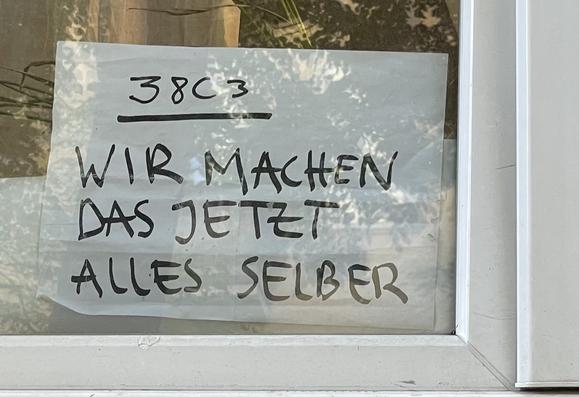 38C3
WIR MACHEN
DAS JETZT
ALLES SELBER